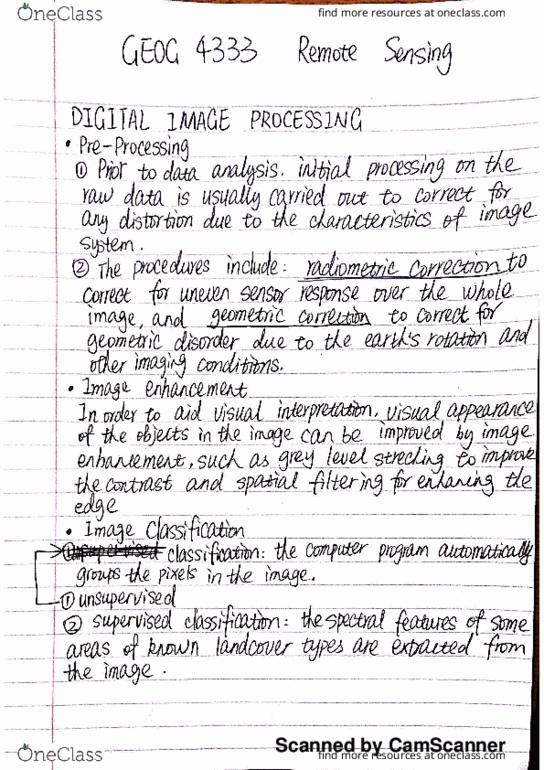 OneClass
find more resources at oneclass.com
GEOG 4333 Remote Sensing
DIGITAL IMAGE PROCESSING
• Pre-Processing
① Prior to data analysis. initial processing on the
raw data is usually carried out to correct for
any distortion due to the characteristics of image
system.
② The procedures include: radiometric correction to
correct for uneven sensor response over the whole
image, and geometric correction to correct for
geometric disorder due to the earth's rotation and
other imaging conditions.
• Image enhancement
In order to aid visual interpretation, visual appearance
of the objects in the image can be improved by image
enhancement, such as grey level streching to improve
the contrast and spatial filtering for enhancing the
edge
• Image Classification
classification: the computer program automatically
groups the pixels in the image.
① unsupervised
② supervised classification: the spectral features of some
areas of known landcover types are extracted from
the image.
Scanned by CamScanner
OneClass
find more resources at oneclass.com